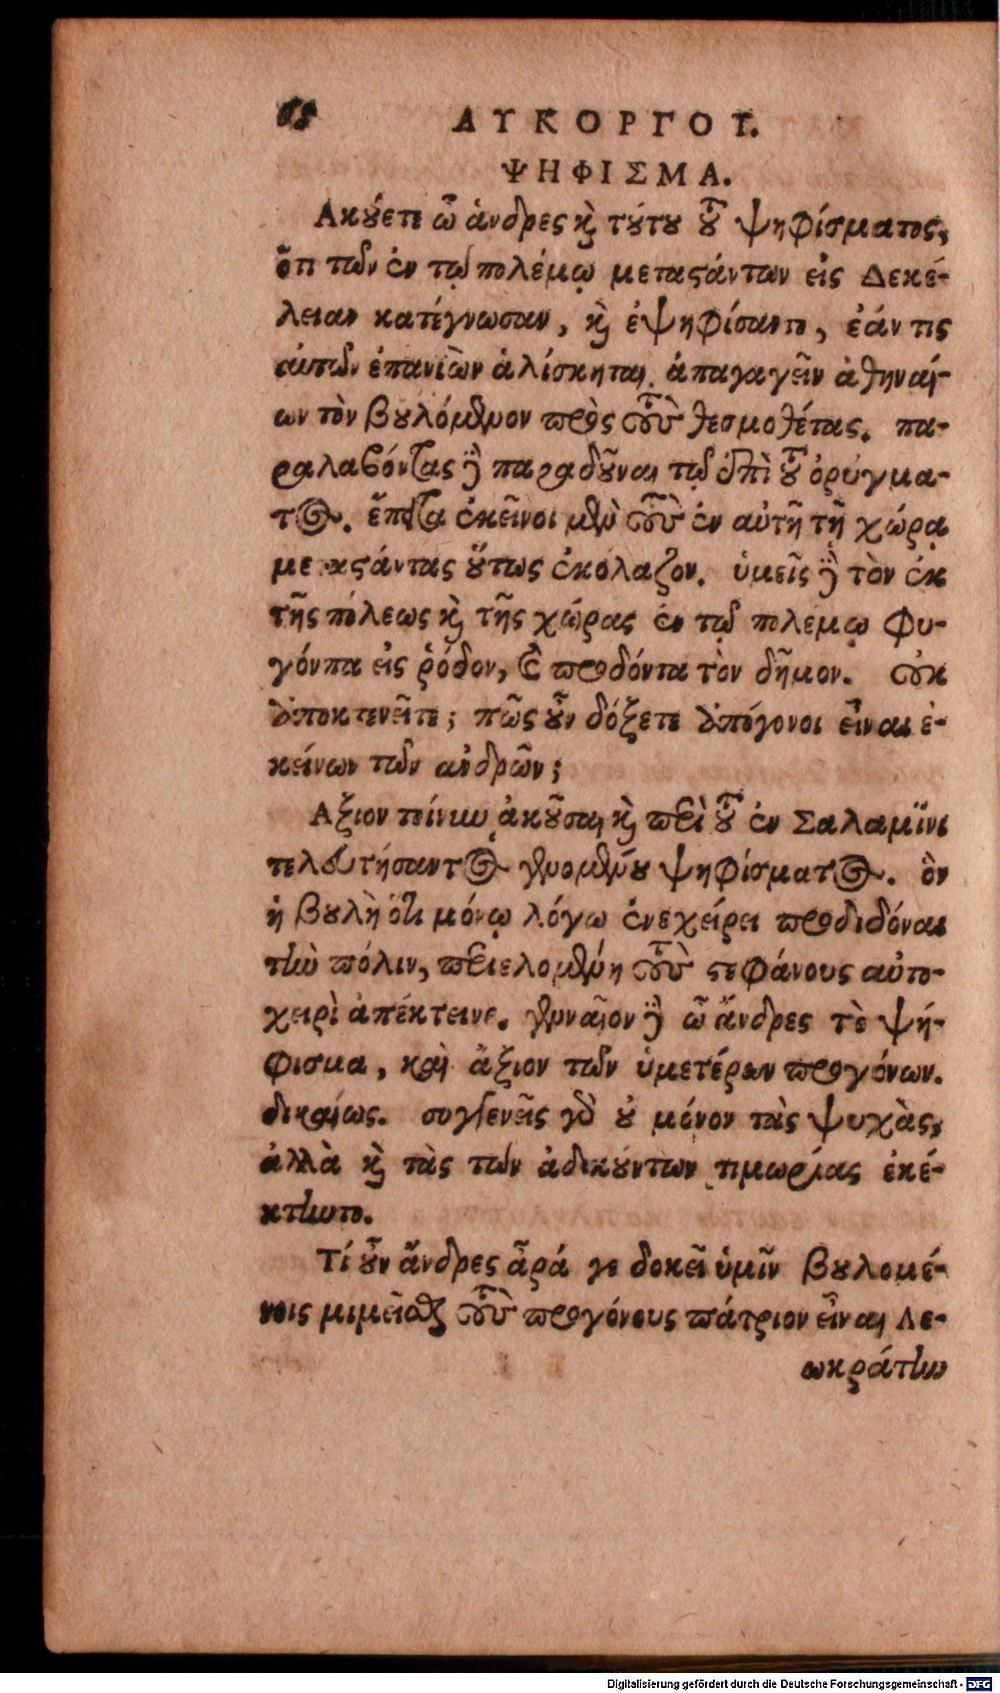 68 ΛΥΚΟΡΓΟΥ.
ΨΗΦΙΣΜΑ.
Ακούετε ὦ ἄνδρες καὶ τούτου τοῦ ψηφίσματος,
ὅτι τῶν ἐν τῷ πολέμῳ μεταστάντων εἰς Δεκέ-
λειαν κατέγνωσαν, καὶ ἐψηφίσαντο, ἐάν τις
αὐτῶν ἐπανιὼν ἁλίσκηται, ἀπαγαγεῖν ἀθηναί-
ων τὸν βουλόμενον πρὸς τοὺς θεσμοθέτας. πα-
ραλαβόντας δὲ παραδοῦναι τῷ ἐπὶ τοῦ ὀρύγμα-
τος. ἔπειτα ἐκεῖνοι μὲν τοὺς ἐν αὐτῇ τῇ χώρᾳ
μεταστάντας οὕτως ἐκόλαζον. ὑμεῖς δὲ τὸν ἐκ
τῆς πόλεως καὶ τῆς χώρας ἐν τῷ πολέμῳ φυ-
γόντα εἰς ῥόδον, καὶ προδόντα τὸν δῆμον. οὐκ
ἀποκτενεῖτε; πῶς οὖν δόξετε ἀπόγονοι εἶναι ἐ-
κείνων τῶν ἀνδρῶν;
Αξιον τοίνυν ἀκοῦσαι καὶ περὶ τοῦ ἐν Σαλαμῖνι
τελευτήσαντος γενομένου ψηφίσματος. ὃν
ἡ βουλὴ ὅτι μόνῳ λόγω ἐνεχείρει προδιδόναι
τὴν πόλιν, περιελομένη τοὺς στεφάνους αὐτο-
χειρὶ ἀπέκτεινε. γενναῖον δὲ ὦ ἄνδρες τὸ ψή-
φισμα, καὶ ἄξιον τῶν ὑμετέρων προγόνων.
δικαίως. συγγενεῖς γὰρ οὐ μόνον τὰς ψυχὰς,
ἀλλὰ καὶ τὰς τῶν ἀδικούντων τιμωρίας ἐκέ-
κτηντο.
Τί οὖν ἄνδρες ἆρά γε δοκεῖ ὑμῖν βουλομέ-
νοις μιμεῖσθαι τοὺς προγόνους πάτριον εἶναι Λε-
ωκράτην
Digitalisierung gefördert durch die Deutsche Forschungsgemeinschaft - DFG